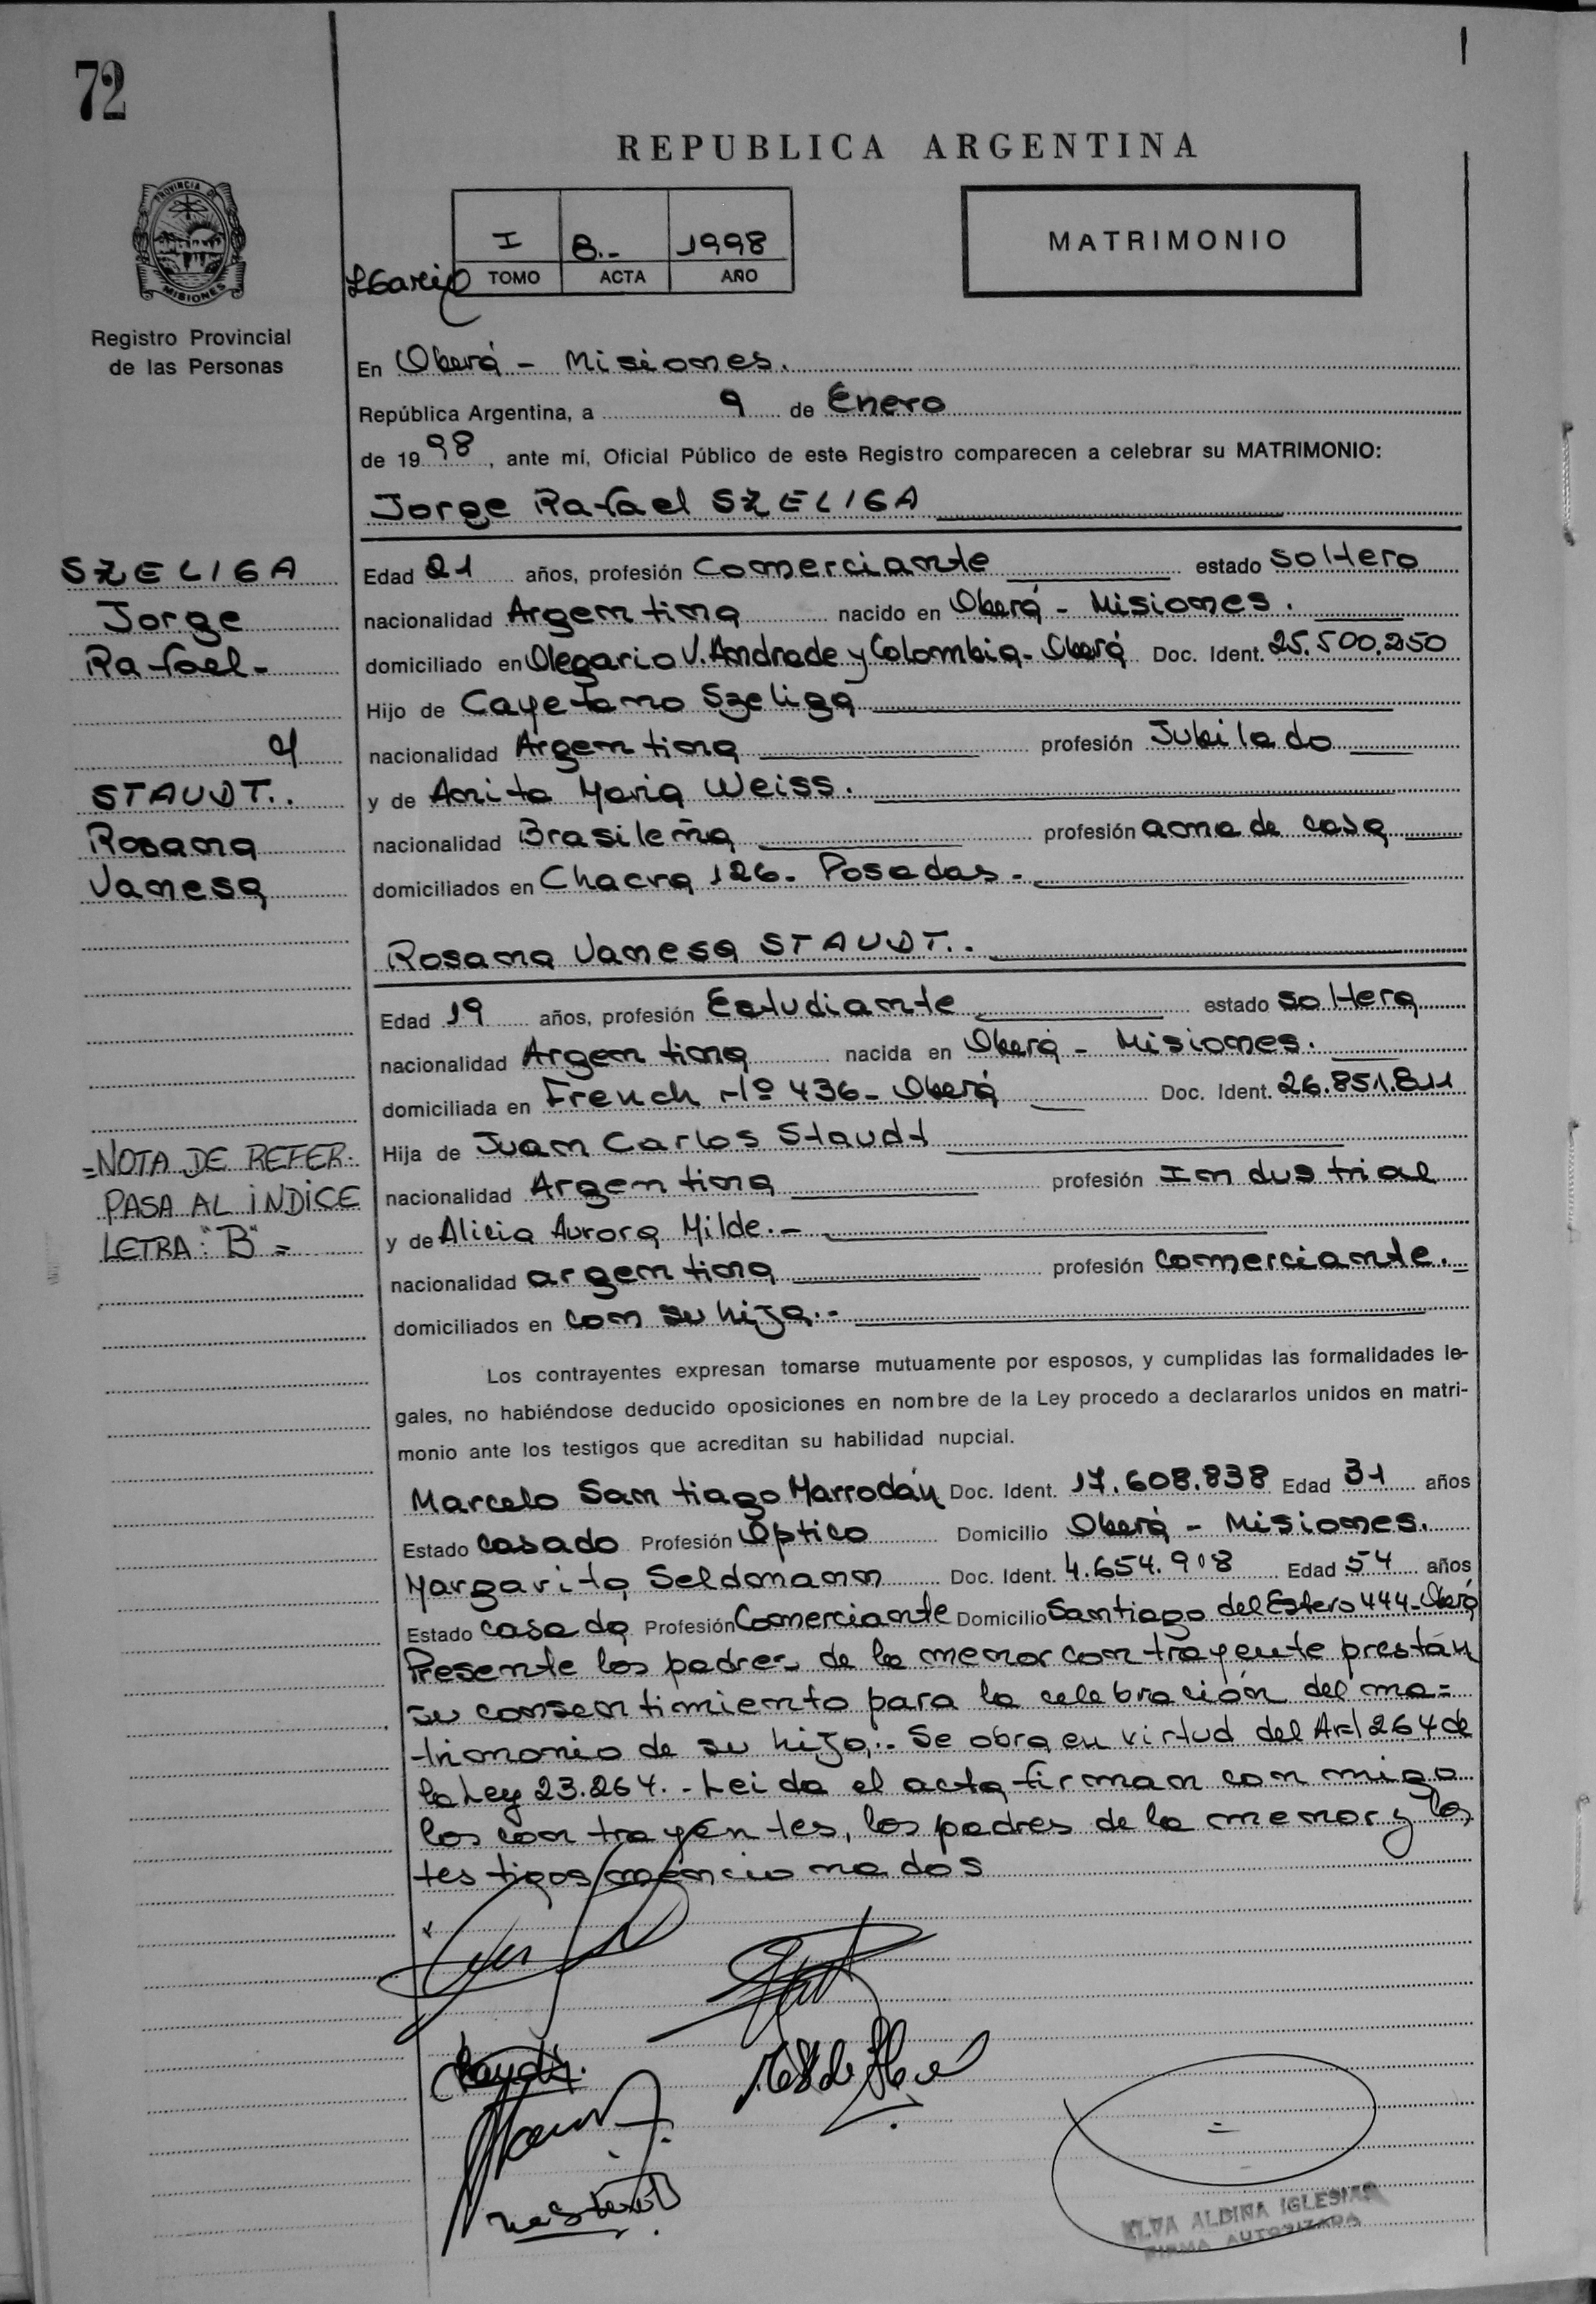 72
REPUBLICA ARGENTINA
PROVINCIA D MISIONES
Registro Provincial
de las Personas
I 8.- 1998
TOMO ACTA AÑO
MATRIMONIO
En Oberá - Misiones.
República Argentina, a 9 de Enero
de 1998, ante mí, Oficial Público de este Registro comparecen a celebrar su MATRIMONIO:
Jorge Rafael SZELIGA
SZELIGA
Jorge
Rafael-
y
STAUDT..
Rosana
Vanesa
Edad 21 años, profesión Comerciante estado soltero
nacionalidad Argentina nacido en Oberá - Misiones.
domiciliado en Olegario V. Andrade y Colombia - Oberá Doc. Ident. 25.500.250
Hijo de Cayetano Szeliga
nacionalidad Argentina profesión Jubilado
y de Anita Maria Weiss.
nacionalidad Brasileña profesión ama de casa
domiciliados en Chacra 126 - Posadas -
Rosana Vanesa STAUDT..
Edad 19 años, profesión Estudiante estado soltera
nacionalidad Argentina nacida en Oberá - Misiones.
domiciliada en French Nº 436 - Oberá Doc. Ident. 26.851.811
Hija de Juan Carlos Staudt
nacionalidad Argentina profesión Industrial
y de Alicia Aurora Milde.-
nacionalidad argentina profesión comerciante.
domiciliados en con su hija.-
=NOTA DE REFER.
PASA AL INDICE
LETRA: "B"=
Los contrayentes expresan tomarse mutuamente por esposos, y cumplidas las formalidades le-
gales, no habiéndose deducido oposiciones en nombre de la Ley procedo a declararlos unidos en matri-
monio ante los testigos que acreditan su habilidad nupcial.
Marcelo Santiago Marrodán Doc. Ident. 17.608.838 Edad 31 años
Estado casado Profesión Optico Domicilio Oberá - Misiones.
Margarita Seldmann Doc. Ident. 4.654.918 Edad 54 años
Estado casada Profesión Comerciante Domicilio Santiago del Estero 444 - Oberá
Presente los padres de la menor contrayente prestan
su consentimiento para la celebración del ma=
trimonio de su hija.. Se obra en virtud del Art 264 de
la Ley 23.264. - Leida el acta firman con migo
los contrayentes, los padres de la menor y los
testigos mencionados
ELVA ALBINA IGLESIAS
FIRMA AUTORIZADA